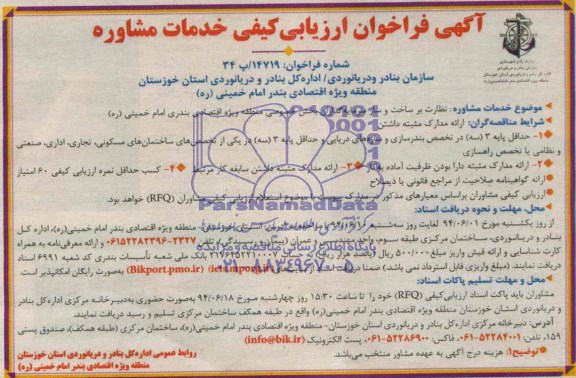 آگهی فراخوان ارزیابی کیفی خدمات مشاوره
شماره فراخوان: ۱۴۷۱۹/پ ۳۴
سازمان بنادر ودریانوردی/ اداره کل بنادر و دریانوردی استان خوزستان
منطقه ویژه اقتصادی بندر امام خمینی (ره)
موضوع خدمات مشاوره : نظارت بر ساخت و ساز سرمایه گذاران بخش خصوصی منطقه ویژه اقتصادی بندری امام خمینی (ره)
شرایط مناقصه گران: ارائه مدارک مثبته داشتن
۱- حداقل پایه ۳ (سه) در تخصص بندرسازی و سازه‌های دریایی و حداقل پایه ۳ (سه) در یکی از تخصص‌های ساختمان‌های مسکونی، تجاری، اداری، صنعتی
و نظامی یا تخصص راهسازی
۲- ارائه مدارک مثبته دارا بودن ظرفیت آماده به کار ۳- ارائه مدارک مثبته داشتن سابقه کار مرتبط ۴- کسب حداقل نمره ارزیابی کیفی ۶۰ امتیاز
ارائه گواهینامه صلاحیت از مراجع قانونی یا ذیصلاح
ارزیابی کیفی مشاوران براساس معیارهای مذکور در مدارک پیوست با موضوع استعلام ارزیابی کیفی مشاوران (RFQ) خواهد بود.
محل، مهلت و نحوه دریافت اسناد:
از روز یکشنبه مورخ ۹۴/۰۶/۰۱ لغایت روز سه‌شنبه منطقه ویژه اقتصادی بندر امام خمینی(ره)، اداره کل
بنادر و دریانوردی، ساختمان مرکزی طبقه سوم، واحد مهندسی و عمران تلفن ۲۳۲۷-۰۶۱۵۲۲۸۲۳۹۶ و ارائه معرفی‌نامه به همراه
کارت شناسایی و ارائه فیش واریز مبلغ ۵۰۰/۰۰۰ ریال (پانصد هزار ریال) به حساب ۲۱۷۶۴۵۲۲۱۰۰۰۷ بانک ملی شعبه تأسیسات بندری کد شعبه ۶۹۹۱ اسناد
دریافت نمایند. (مبلغ واریزی قابل استرداد نمی باشد) ضمنا دریافت (Bikport.pmo.ir) به‌صورت رایگان امکانپذیر است.
محل و مهلت تسلیم پاکات اسناد:
مشاوران باید پاکت اسناد ارزیابی کیفی (RFQ) خود را تا ساعت ۱۵:۳۰ روز چهارشنبه مورخ ۹۴/۰۶/۱۸ به‌صورت حضوری به‌دبیرخانه مرکزی اداره‌کل بنادر
و دریانوردی استان خوزستان منطقه ویژه اقتصادی بندر امام خمینی(ره) واقع در طبقه همکف ساختمان مرکزی تسلیم و رسید دریافت نمایند.
آدرس: دبیرخانه مرکزی اداره‌کل بنادر و دریانوردی استان خوزستان- منطقه ویژه اقتصادی بندر امام خمینی(ره) ساختمان مرکزی (طبقه همکف)، صندوق پستی
۱۵۹، تلفن: ۰۶۱-۵۲۲۸۴۰۰۱، فاکس: ۰۶۱-۵۲۲۸۶۹۰۰، پست الکترونیک (info@bik.ir)
توضیح۱: هزینه درج آگهی به عهده مشاور منتخب می‌باشد.
روابط عمومی اداره‌کل بنادر و دریانوردی استان خوزستان
منطقه ویژه اقتصادی بندر امام خمینی (ره)
ParsNamadData
پایگاه اطلاع رسانی مناقصه و مزایده
۰۲۱-۸۸۳۴۹۶۷۰-۵